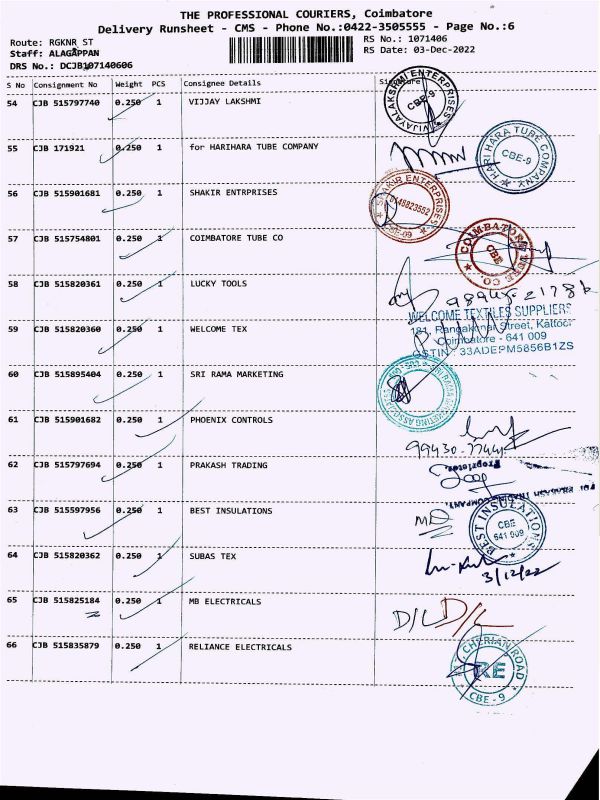 THE PROFESSIONAL COURIERS, Coimbatore
Delivery Runsheet - CMS - Phone No.:0422-3505555 - Page No.:6
Route: RGKNR_ST
RS No.: 1071406
Staff: ALAGAPPAN
RS Date: 03-Dec-2022
DRS No.: DCJB107140606
S No Consignment No Weight PCS Consignee Details Signature
54 CJB 515797740 0.250 1 VIJJAY LAKSHMI
VIJAYALAKSHMI ENTERPRISES CBE-9
55 CJB 171921 0.250 1 for HARIHARA TUBE COMPANY
HARI HARA TUBE COMPANY CBE-9
56 CJB 515901681 0.250 1 SHAKIR ENTRPRISES
SHAKIR ENTERPRISES CBE-09
57 CJB 515754801 0.250 1 COIMBATORE TUBE CO
COIMBATORE TUBE CO CBE
58 CJB 515820361 0.250 1 LUCKY TOOLS
59 CJB 515820360 0.250 1 WELCOME TEX
WELCOME TEXTILES SUPPLIERS
181, Rangakonar Street, Kattoor
Coimbatore - 641 009
GSTIN : 33ADEPM5856B1ZS
60 CJB 515895404 0.250 1 SRI RAMA MARKETING
61 CJB 515901682 0.250 1 PHOENIX CONTROLS
99430-77441
62 CJB 515797694 0.250 1 PRAKASH TRADING
For PRAKASH TRADING COMPANY,
Proprietor.
63 CJB 515597956 0.250 1 BEST INSULATIONS
BEST INSULATIONS CBE 641 009
64 CJB 515820362 0.250 1 SUBAS TEX
3/12/22
65 CJB 515825184 0.250 1 MB ELECTRICALS
D/L D/L
66 CJB 515835879 0.250 1 RELIANCE ELECTRICALS
CHERIAN ROAD RE CBE - 9